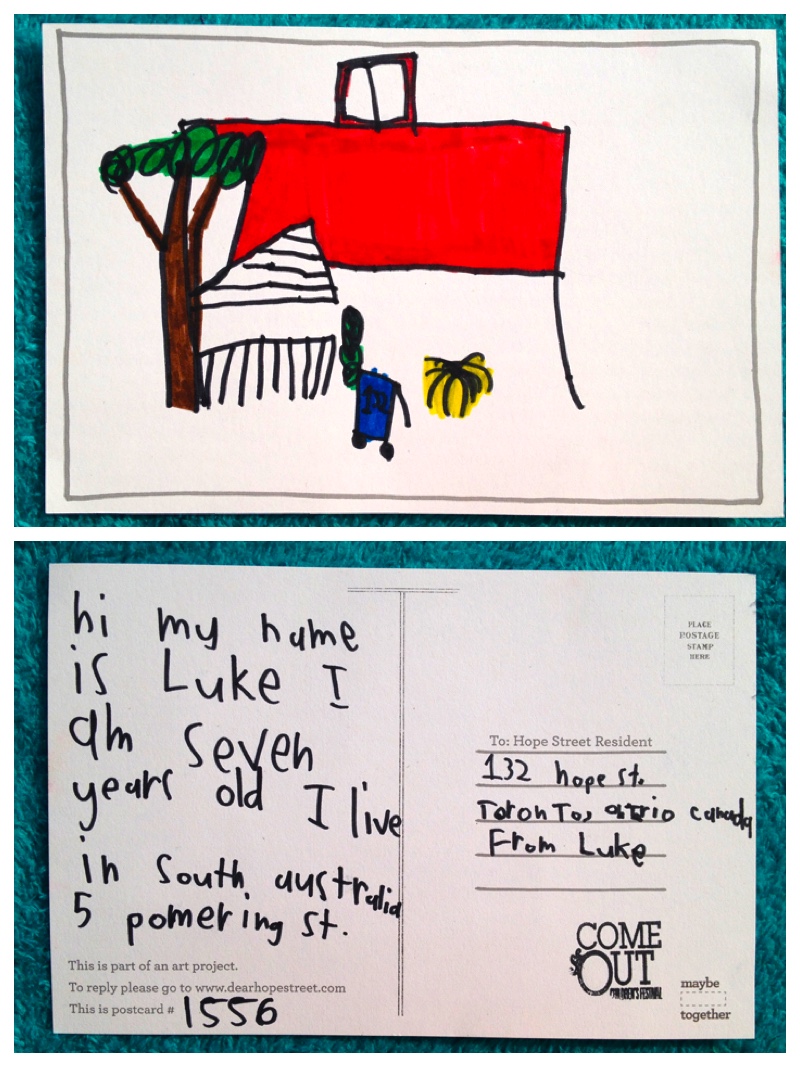 hi my name
is Luke I
am seven
years old I live
in South australia
5 pomering st.
This is part of an art project.
To reply please go to www.dearhopestreet.com
This is postcard # 1556
PLACE
POSTAGE
STAMP
HERE
To: Hope Street Resident
132 hope st.
Toronto, canada
From Luke
COME
OUT
CHILDREN'S FESTIVAL
maybe
together